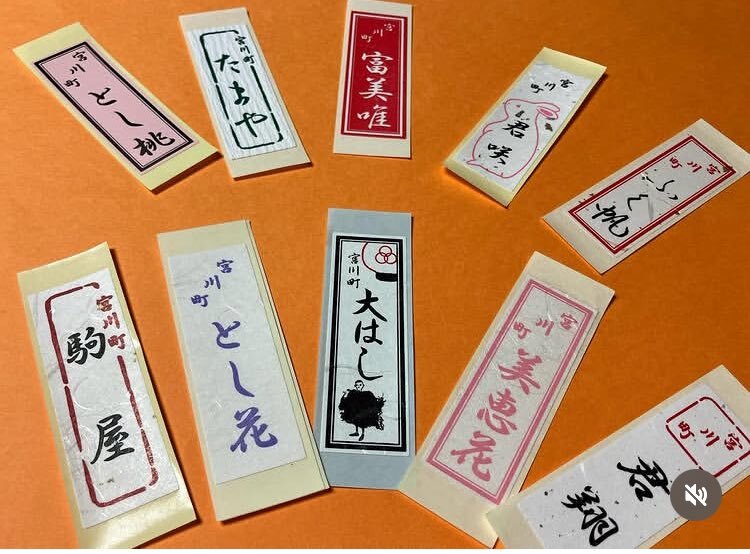 宮川町
とし桃
宮川町
たまや
宮川町
富美唯
宮川町
君咲
宮川町
ふく帆
宮川町
駒屋
宮川町
とし花
宮川町
大はし
宮川町
美恵花
宮川町
君翔